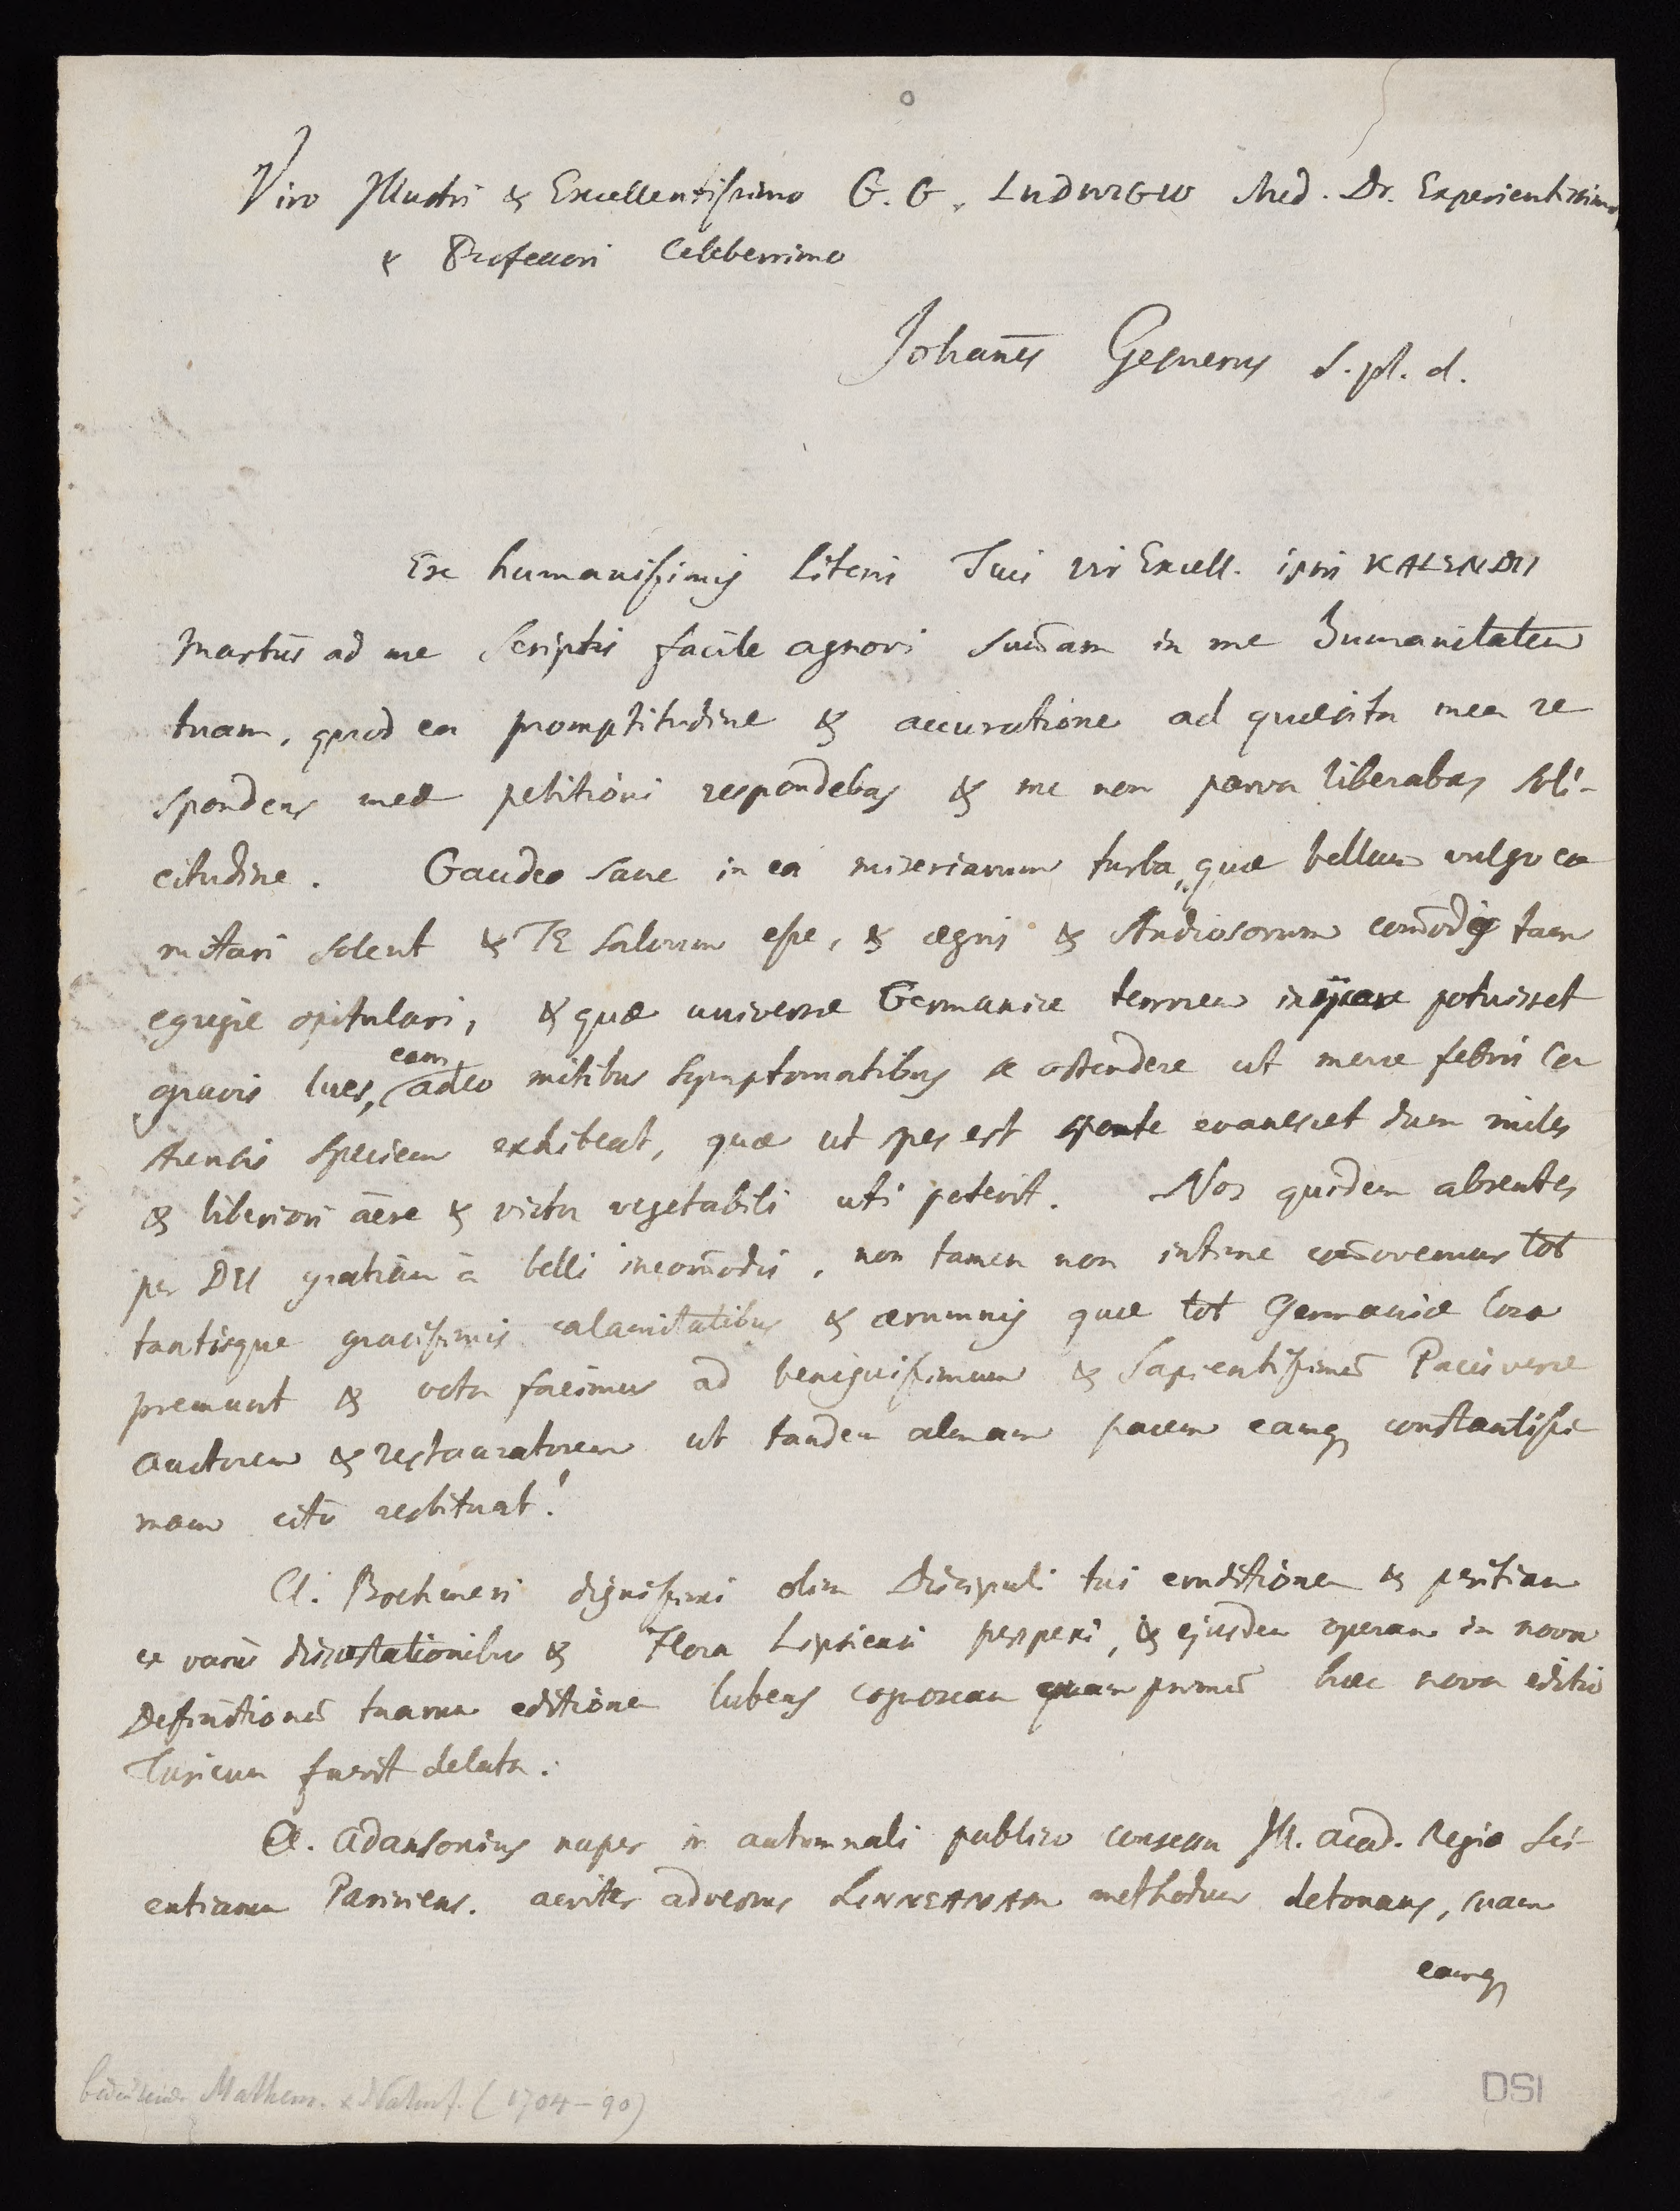 Viro Illustri & Excellentissimo G. G. LUDWIGIO Med. Dr. Experientissimo
& Professori Celeberrimo
Johan̅es Gesnerus s. pl. d.
Ex humanissimis literis Tuis Vir Excell. ipsis KALENDIS
Martiis ad me scriptis facile agnovi sum̅am in me Humanitatem
tuam, quod ea promptitudine & accuratione ad quæsita mea re
spondens meæ petitioni respondebas & me non parva liberabas soli-
citudine. Gaudeo sane in ea miseriarum turba, quæ bellum vulgo co
mitari solent & TE salvum esse, & ægris & studiosorum com̅odis tam
egregie opitulari, & quæ universæ Germaniæ terrorem injicere potuisset
gravis lues, eam adeo mitibus symptomatibus se ostendere ut meræ febris ca
strensis speciem exhibeat, quæ ut spes est sponte evanescet dum miles
& liberiori aëre & victu vegetabili uti poterit. Nos quidem absentes
per DEI gratiam à belli incom̅odis, non tamen non intime com̅ovemur tot
tantisque gravissimis calamitatibus & ærumnis quæ tot Germaniæ loca
premunt & vota facimus ad benignissimum & Sapientissimum̅ Pacis veræ
auctorem & restauratorem ut tandem almam pacem eamq constantissi
mam cito restituat!
Cl. Boehmeri dignissimi olim Discipuli tui eruditionem & peritiam
ex variis dissertationibus & Flora Lipsiensi perspexi, & ejusdem operam in nova
Definitionum̅ tuarum editione lubens cognoscam quam primum̅ hæc nova editio
Turicum fuerit delata.
Cl. Adansonius nuper in autumnali publico consessu Ill. Acad. Regiæ Sci-
entiarum Parisiens. acriter adversus LINNEANAM methodum detonans, suam
eamq
bedeutender Mathem. & Naturf. (1704-90)
DSI